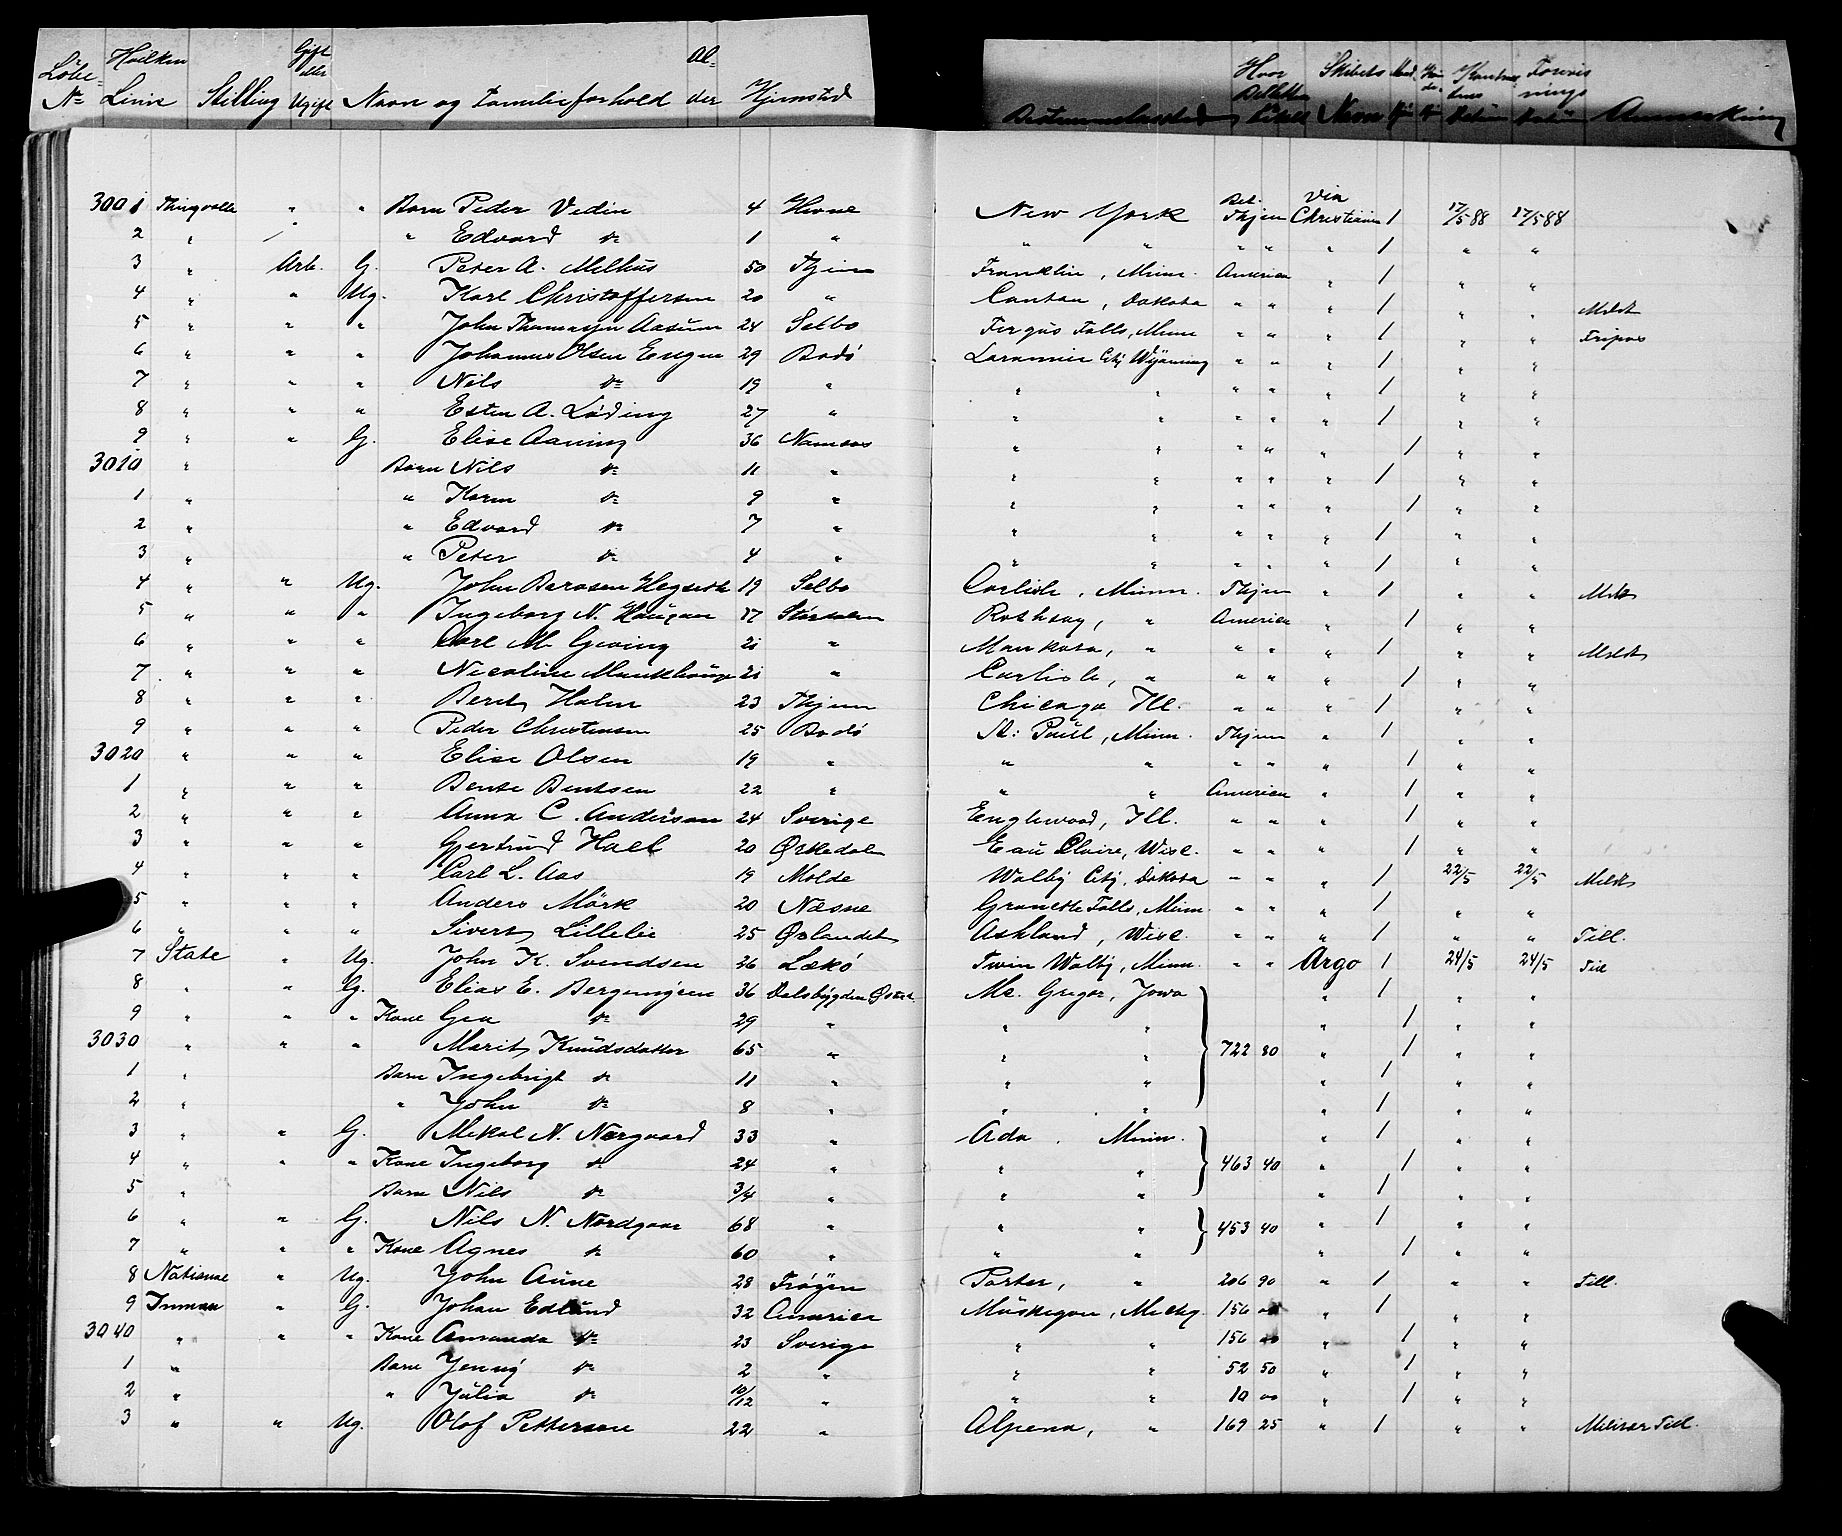 Löbe- No Hvilken Linie Stilling Gift eller Ugift Navn og Familieforhold Al- der Hjemsted Bestemmelsessted Hvor Billetten Skibets Navn Anmærkning
3001 Thingvalla " " Barn Peder Vedin 4 Hevne New York Bet. Thjem Via Christiania 1 17/5 88 17/5 88
2 " " " Edvard do 1 " " " " " " 1 " "
3 " Arb. G. Peter A. Melhus 50 Thjem Franklin, Minn. America " 1 " "
4 " " Ug. Karl Christoffersen 20 " Canton, Dakota " " " 1 " " Meldt
5 " " " John Thomassen Aasum 24 Selbo Fergus Falls, Minn " " " 1 " " Fripas
6 " " " Johannes Olsen Engen 29 Bodö Laramie City Wyoming " " " 1 " "
7 " " " Nils do 19 " " " " " " 1 " "
8 " " " Esten A. Löding 27 " " " " " " 1 " "
9 " " G. Elise Aaning 36 Namsos " " " " " 1 " "
3010 " Barn Nils do 11 " " " " " " 1 " "
1 " " Karen do 9 " " " " " " 1 " "
2 " " Edvard do 7 " " " " " " 1 " "
3 " " Peter do 4 " " " " " " 1 " "
4 " " Ug. John Berosen Hegseth 19 Selbo Carlisle, Minn. Thjem " 1 " " Meldt
5 " " " Ingeborg N. Haugan 17 Stördalen Rothsay, " America " 1 " "
6 " " " Carl M. Geving 21 " Mankota, " " " " 1 " " Meldt
7 " " " Nicoline Munkhaug 21 " Carlisle, " " " " 1 " "
8 " " " Berit Holm 23 Thjem Chicago Ill. " " " 1 " "
9 " " " Peder Christensen 25 Bodö St: Paul, Minn. Thjem " 1 " "
3020 " " " Elise Olsen 19 " " " " " " 1 " "
1 " " " Bense Bentsen 22 " " " America " 1 " "
2 " " " Anna C. Anderson 24 Sverige Englewood, Ill. " " " 1 " "
3 " " " Gjertrud Hall 20 Ørkedalen Eau Claire, Wisc. " " " 1 " "
4 " " " Carl L. Aas 19 Molde Walby City, Dakota " " " 1 22/5 22/5 Meldt
5 " " " Anders Mörk 20 Næsne Granette Falls, Minn. " " " 1 " "
6 " " " Sivert Lillelie 25 Ørlandet Ashland, Wisc. " " " 1 " " Till.
7 State " Ug. John K. Svendsen 26 Lækö Twin Walby, Minn. " " Argo 1 24/5 24/5 Till
8 " " G. Elias E. Bergemyren 36 Dalsbygden Østerd. Mc. Gregor, Jowa " 1 " "
9 " " " Kone Gea do 29 " " " " 1 " "
3030 " " " Marit Knudsdatter 65 " " " 722 80 " 1 " "
1 " Barn Ingebrigt do 11 " " " " 1 " "
2 " " John do 8 " " " " 1 " "
3 " " G. Mikal N. Nærgaard 33 " Ada. Minn. " 1 " "
4 " " " Kone Ingeborg do 24 " " " 463 40 " 1 " "
5 " Barn Nils do 3/4 " " " " 1 " "
6 " " G. Nils N. Nordgaar 68 " " " 453 40 " 1 " "
7 " " " Kone Agnes do 60 " " " " 1 " "
8 National " Ug. John Aune 28 Fröyen Porter, " 206 90 " 1 " " Till.
9 Inman " G. Johan Edlund 32 America Muskegon, Michg. 156 00 " 1 " "
3040 " " " Kone Amanda do 23 Sverige " " 156 00 " 1 " "
1 " Barn Jenny do 2 " " " 52 50 " 1 " "
2 " " Julia do 10/12 " " " 10 00 " 1 " "
3 " " Ug. Olof Petterson 22 " Alpena, " 169 25 " 1 " " Militær Till.